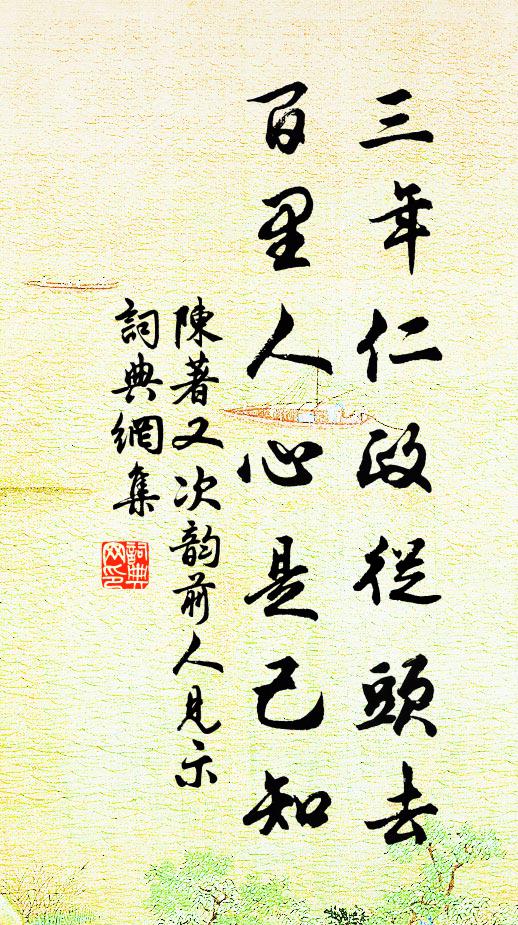 三年仁政從頭去
百里人心是己知
陳著又次韵前人見示
詞典網集
詞典网印